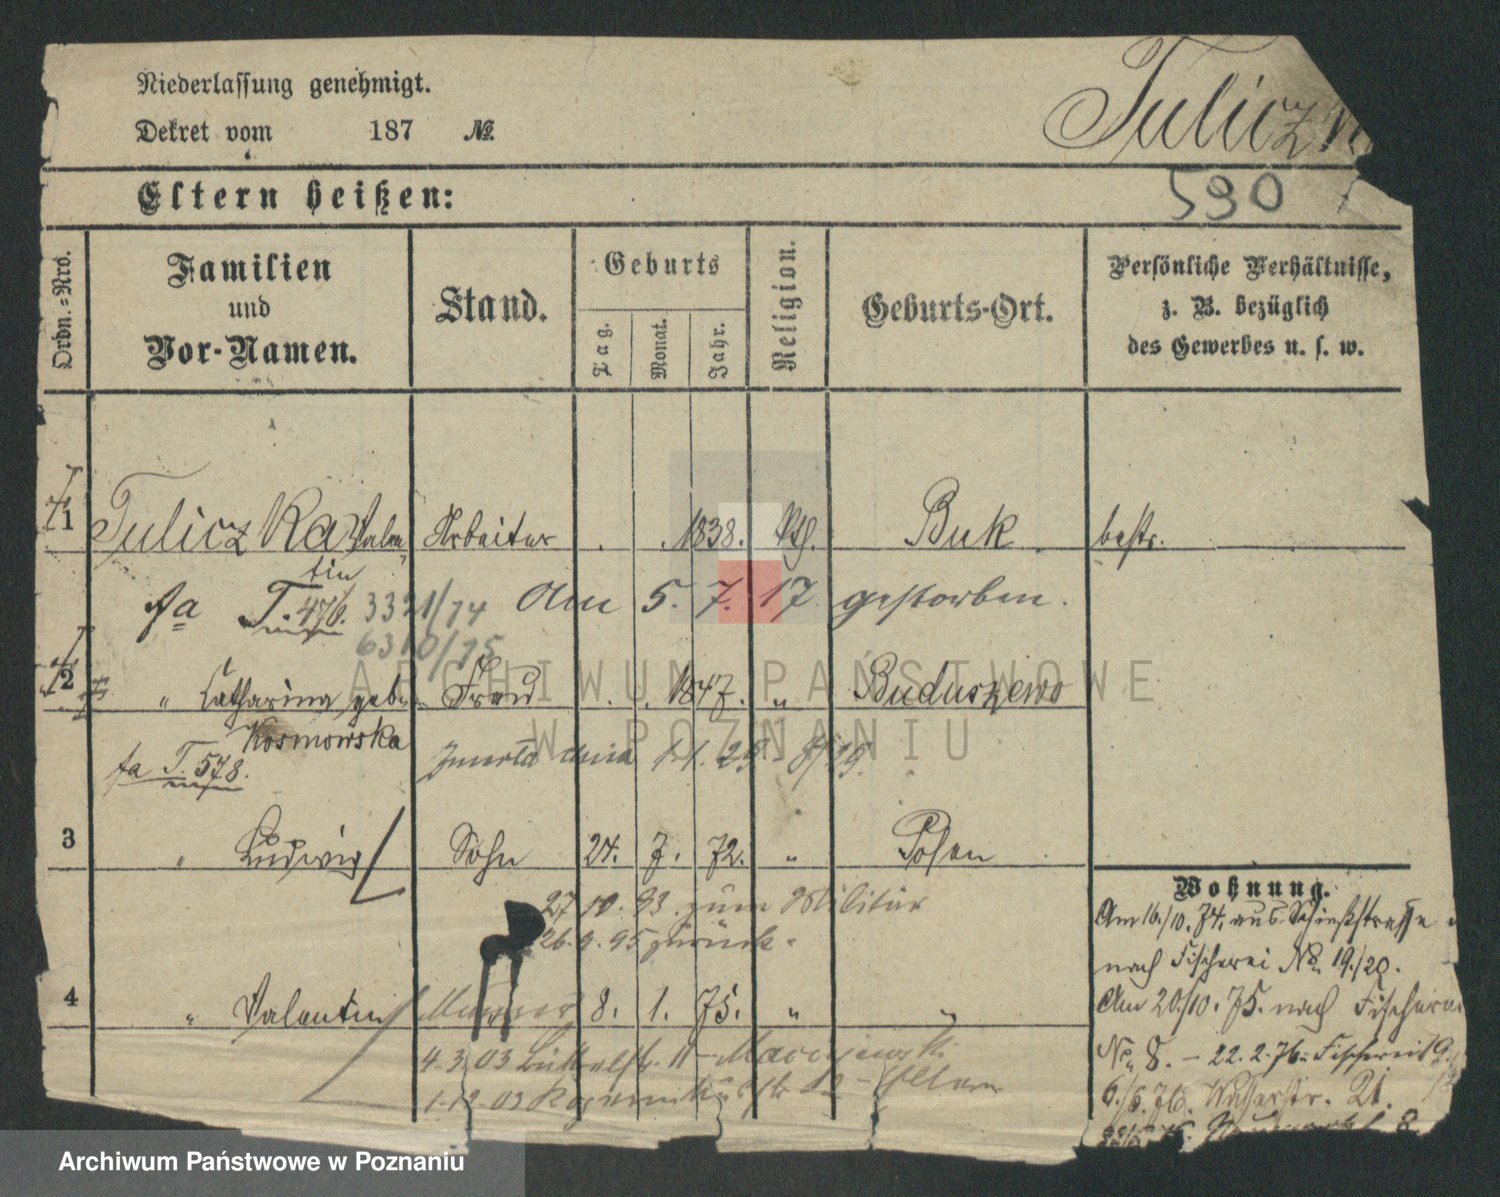 Niederlassung genehmigt.
Dekret vom 187 №
Tulicz
590
Eltern heißen:
Ordn.=Nro.
Familien
und
Vor-Namen.
Stand.
Geburts
Tag.
Monat.
Jahr.
Religion.
Geburts-Ort.
Persönliche Verhältnisse,
z. B. bezüglich
des Gewerbes u. s. w.
1 Tuliczka Valen Arbeiter 1838. Kth. Buk bestr.
tin
fa T. 476. 3321/74 Am 5. 7. 17 gestorben.
6310/75
2 " Catharina geb. Frau 1847. " Buduszewo
Kosmowska
fa T. 578. Zmarła dnia 1.1.29
3 " Ludwig Sohn 24. 7. 72. " Posen
27 10. 93. zum Militär
26.9.95 zurück.
4 " Valentin Maurer 8. 1. 75. " "
4.3.03 11 - Maciejewski
1.12.03 12 - Eltern
Wohnung.
Am 16./10. 74. aus Schießstrasse
nach Fischerei No 19./20.
Am 20./10. 75. nach Fischerei
No. 8. - 22.2.76. Fischerei 19.
6./6. 76. Wasserstr. 21.
8
ARCHIWUM PAŃSTWOWE
W POZNANIU
Archiwum Państwowe w Poznaniu